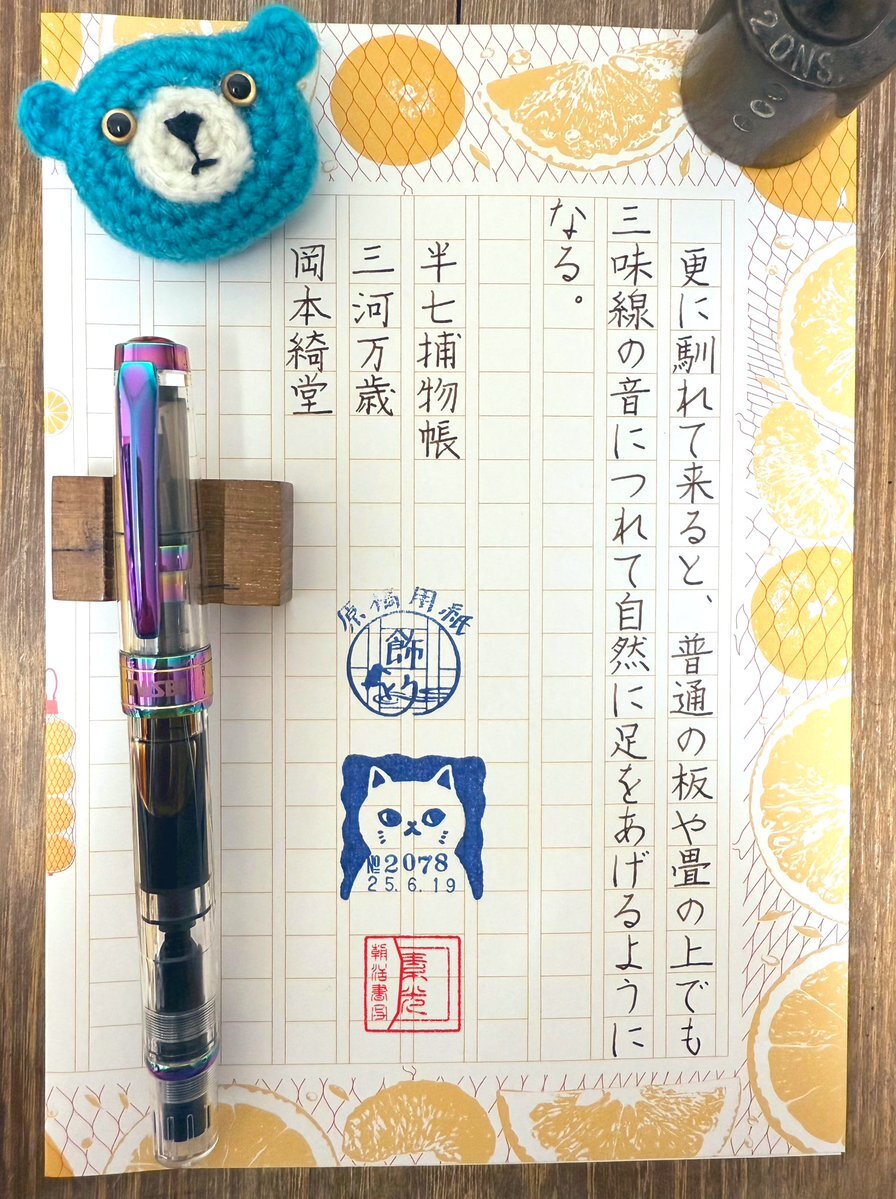 更に馴れて来ると、普通の板や畳の上でも
三味線の音につれて自然に足をあげるように
なる。
半七捕物帳
三河万歳
岡本綺堂
原稿用紙
飾り
№2078
25.6.19
素光
朝活書写
TWSBI
2 ONS.